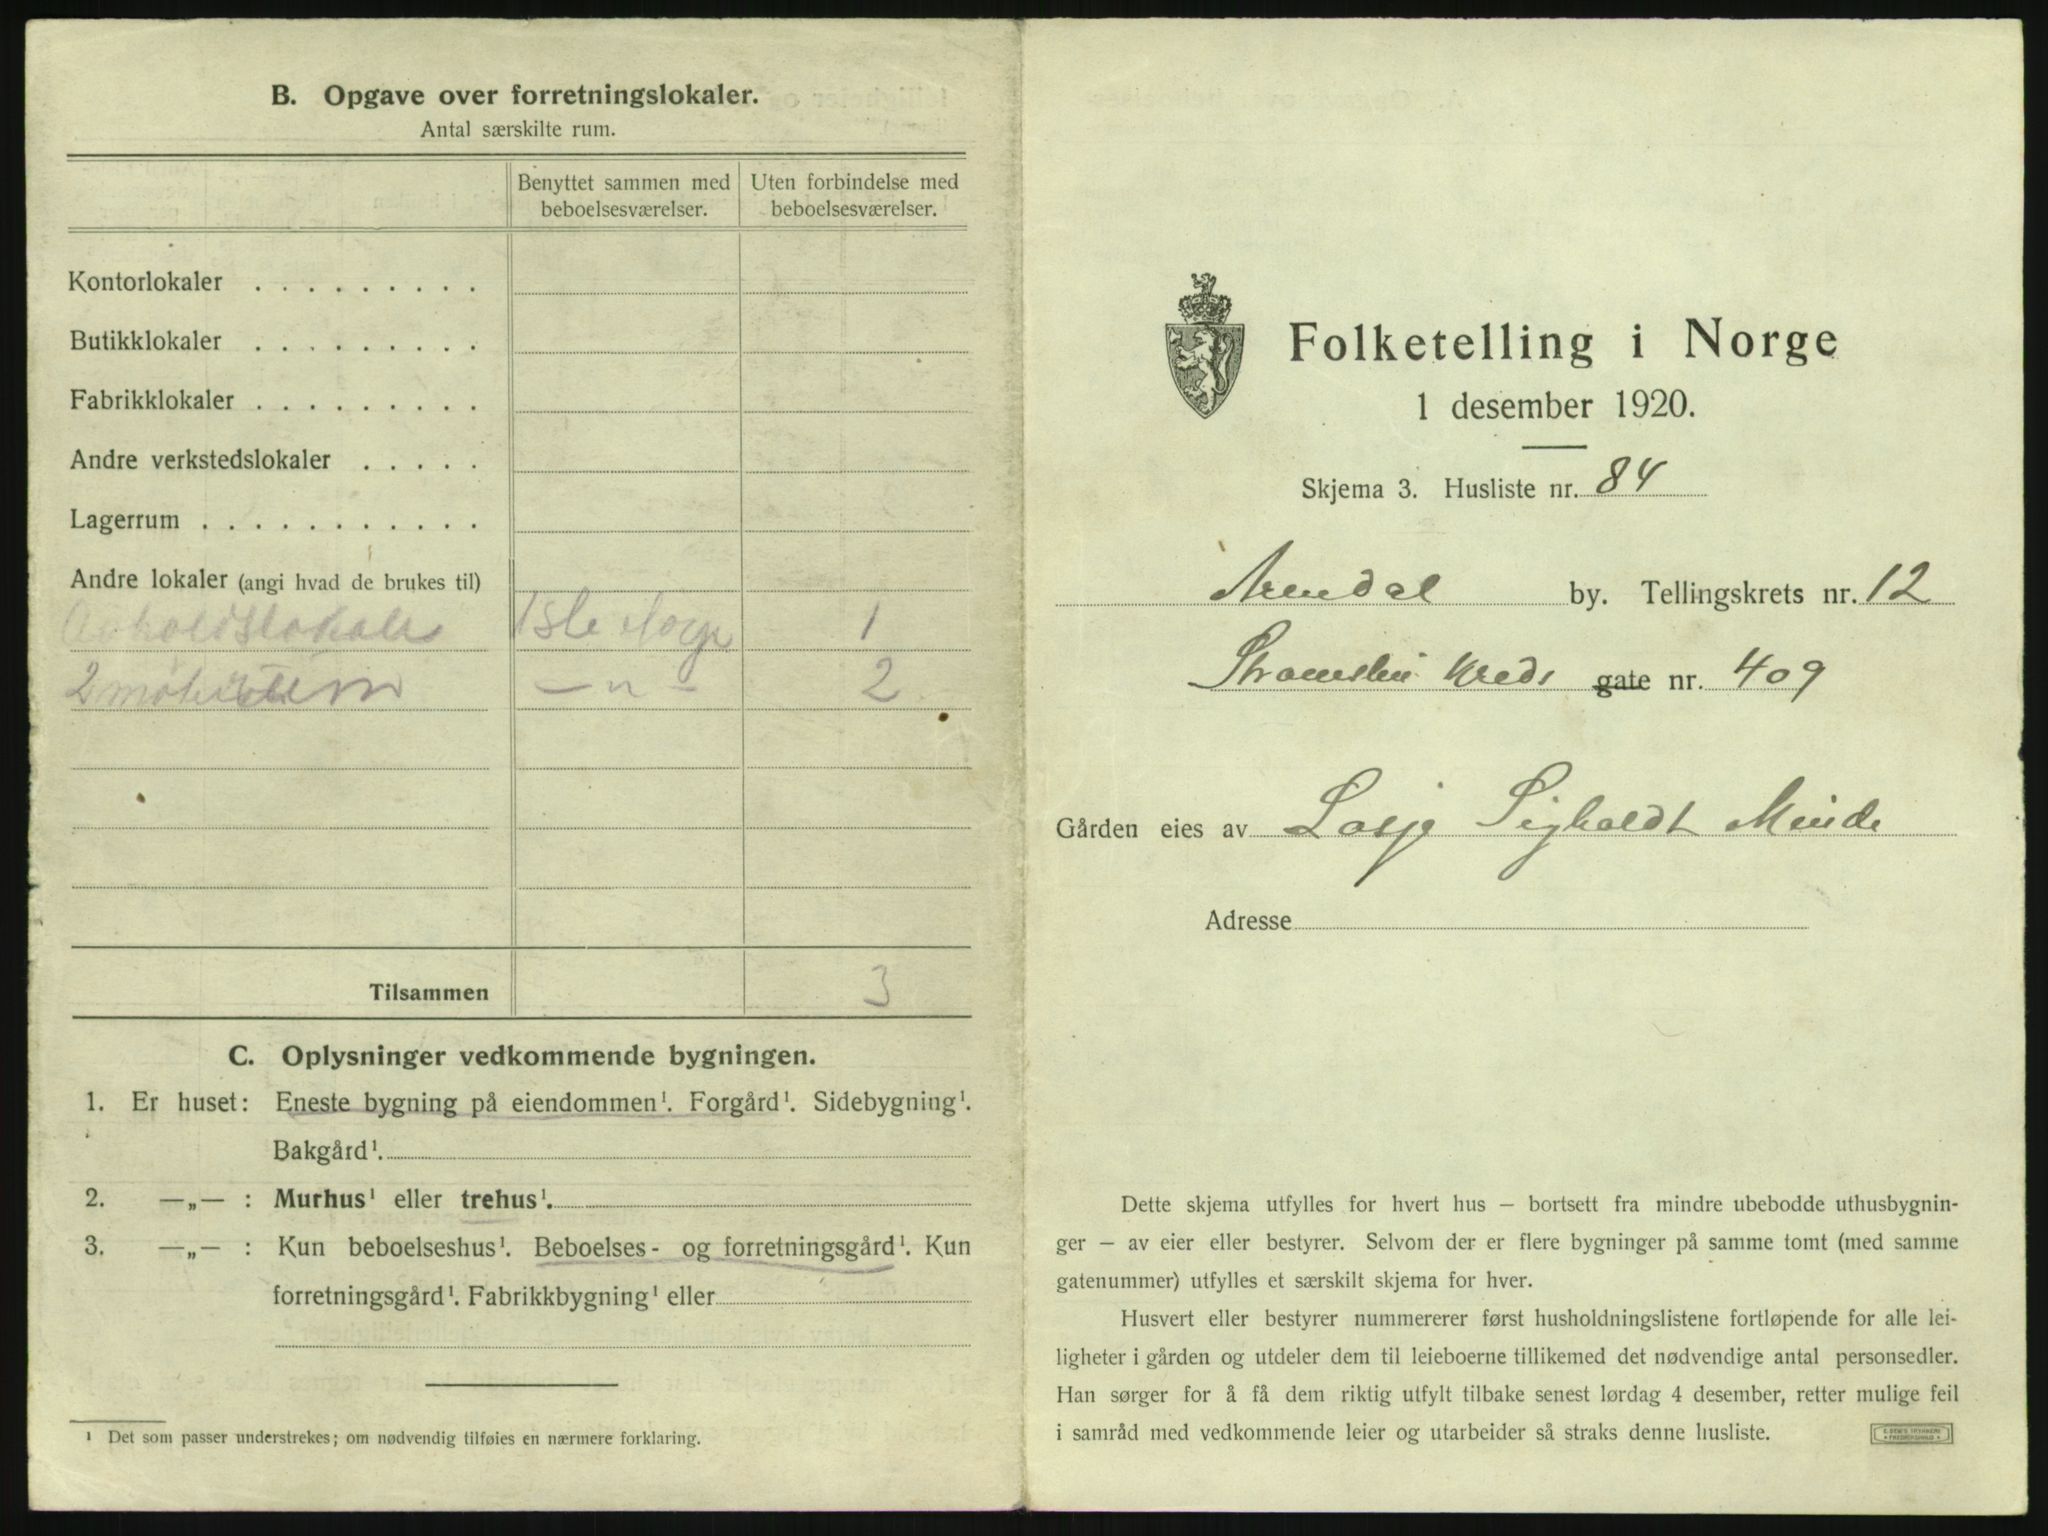 B. Opgave over forretningslokaler.
Antal særskilte rum.
Benyttet sammen med beboelsesværelser.
Uten forbindelse med beboelsesværelser.
Kontorlokaler . . . . . . . . .
Butikklokaler . . . . . . . . .
Fabrikklokaler . . . . . . . . .
Andre verkstedslokaler . . . . .
Lagerrum . . . . . . . . . . .
Andre lokaler (angi hvad de brukes til)
1
2 — „ — 2
Tilsammen 3
C. Oplysninger vedkommende bygningen.
1. Er huset: Eneste bygning på eiendommen¹. Forgård¹. Sidebygning¹.
Bakgård¹.
2. —„— : Murhus¹ eller trehus¹.
3. —„— : Kun beboelseshus¹. Beboelses- og forretningsgård¹. Kun
forretningsgård¹. Fabrikkbygning¹ eller
¹ Det som passer understrekes; om nødvendig tilføies en nærmere forklaring.
Folketelling i Norge
1 desember 1920.
Skjema 3. Husliste nr. 84
Arendal by. Tellingskrets nr. 12
Kreds gate nr. 409
Gården eies av Losje Sigholdt Minde
Adresse
Dette skjema utfylles for hvert hus – bortsett fra mindre ubebodde uthusbygnin-
ger – av eier eller bestyrer. Selvom der er flere bygninger på samme tomt (med samme
gatenummer) utfylles et særskilt skjema for hver.
Husvert eller bestyrer nummererer først husholdningslistene fortløpende for alle lei-
ligheter i gården og utdeler dem til leieboerne tillikemed det nødvendige antal personsedler.
Han sørger for å få dem riktig utfylt tilbake senest lørdag 4 desember, retter mulige feil
i samråd med vedkommende leier og utarbeider så straks denne husliste.